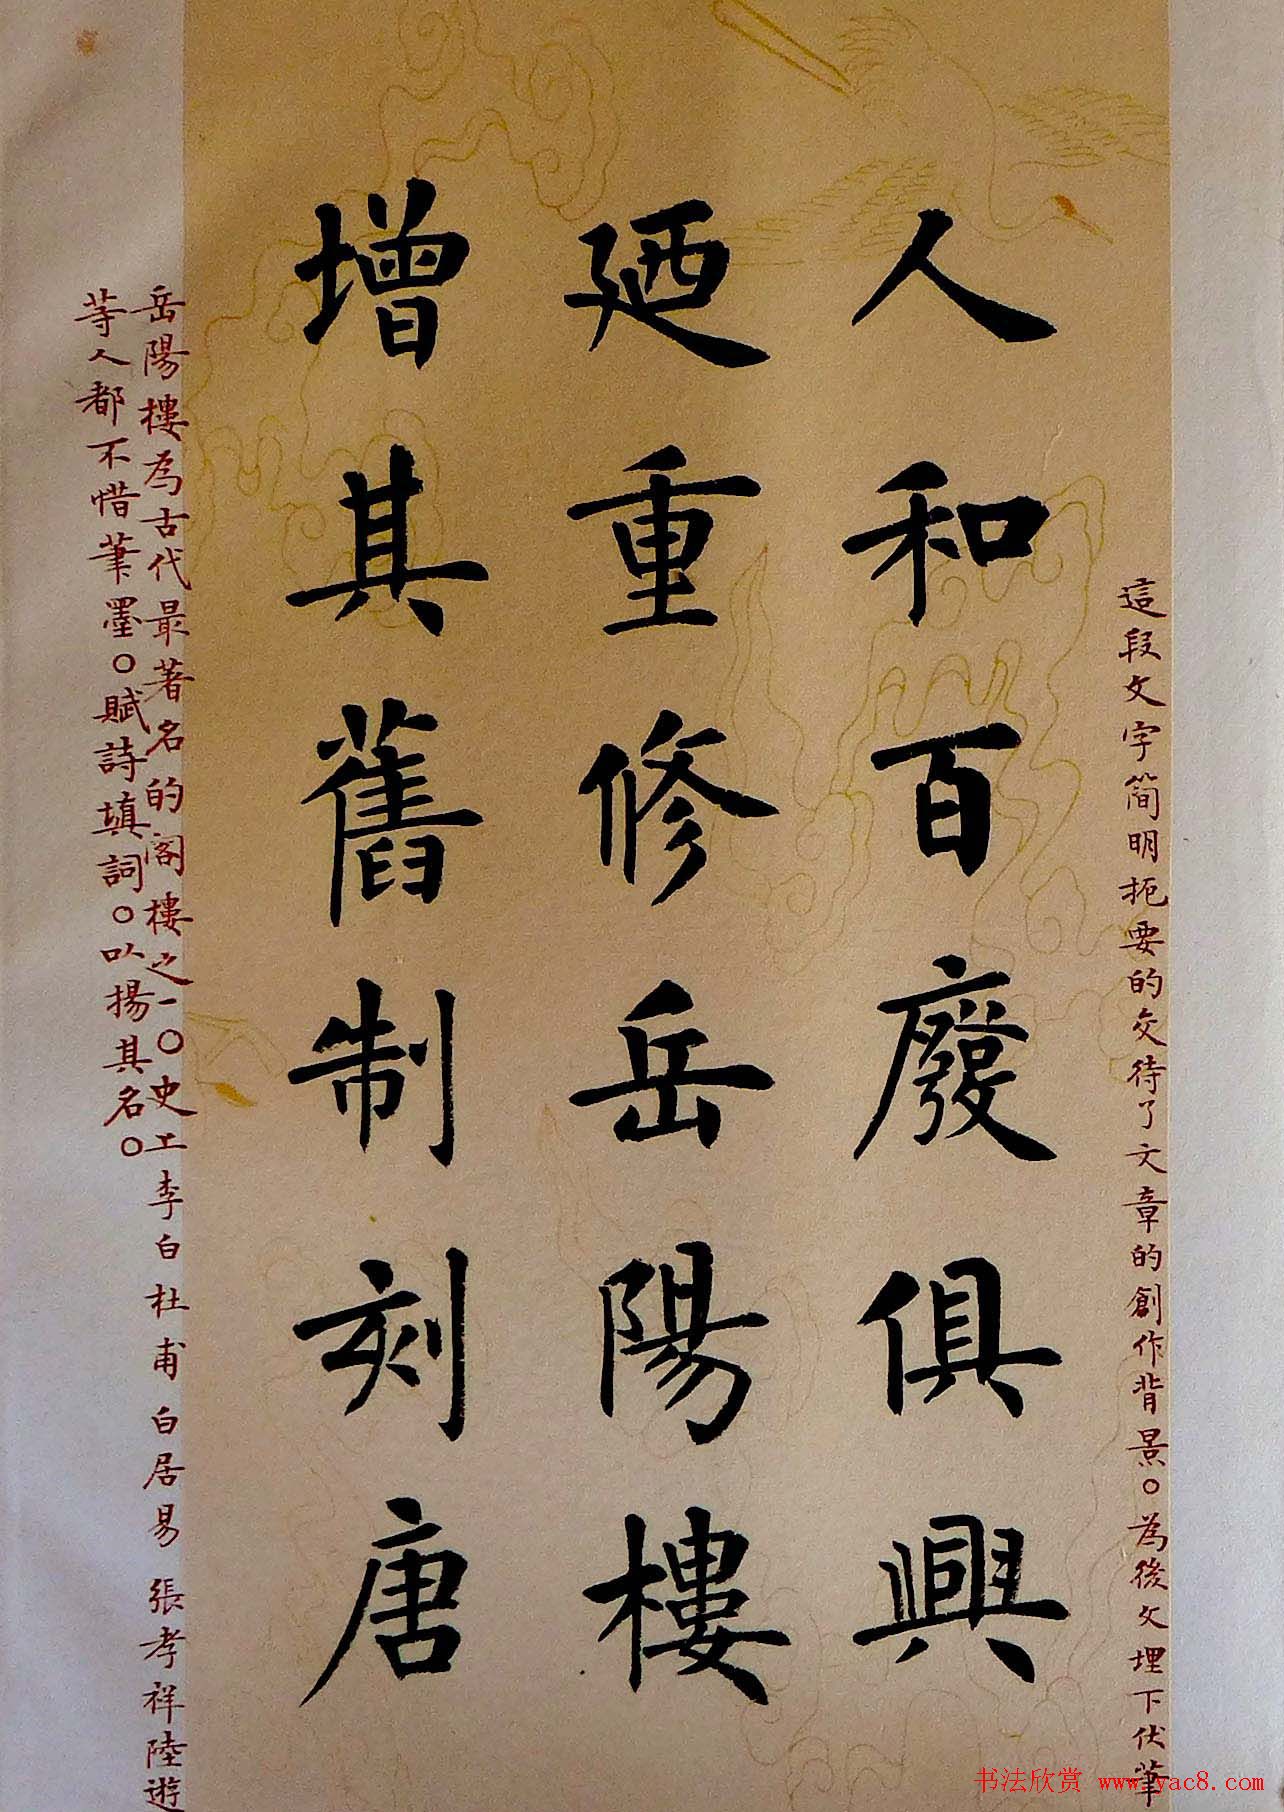 這段文字简明扼要的交待了文章的創作背景。為後文埋下伏筆
人和百廢俱興
廼重修岳陽樓
增其舊制刻唐
岳陽樓為古代最著名的阁樓之一。史上李白杜甫白居易張孝祥陸遊
等人都不惜筆墨。賦詩填詞。以揚其名。
书法欣赏 www.yac8.com